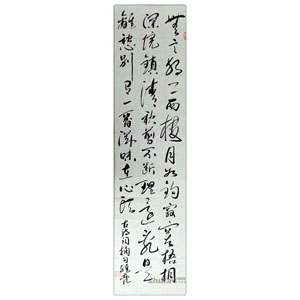 無言獨上西樓月如鉤寂寞梧桐
深院鎖清秋剪不斷理還亂是
離愁別是一番滋味在心頭